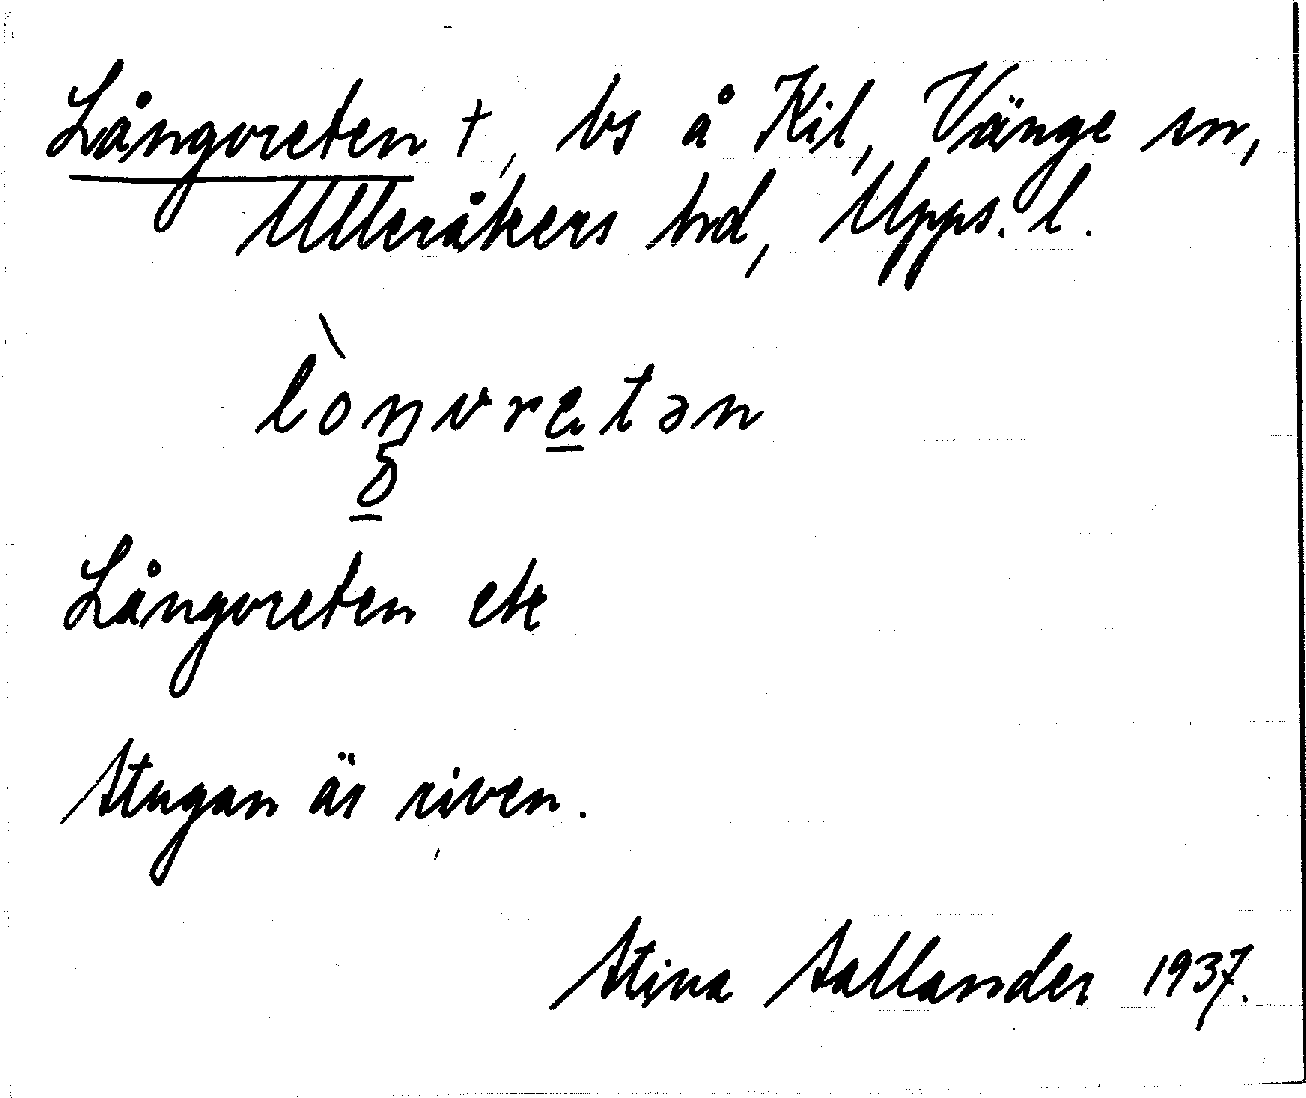 Långvreten †, bs å Kil, Vänge sn,
Ulleråkers hd, Upps. l.
lòŋvretən
g
Långvreten ek
Stugan är riven.
Stina Sallander 1937.